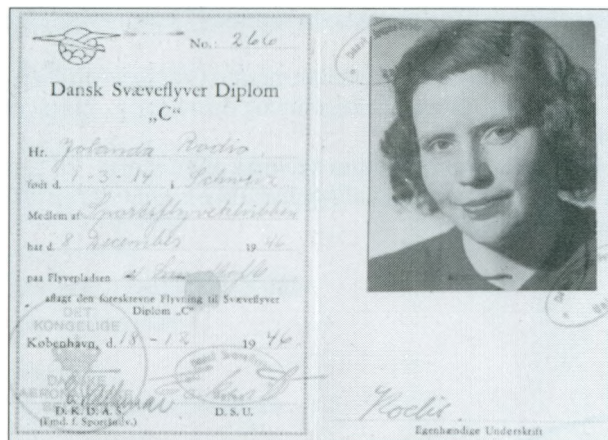 No.: 266
Dansk Svæveflyver Diplom
„C”
Hr. Jolanda Rodio
født d. 1-3-14 i Schweiz
Medlem af Sportsflyveklubben
har d. 8 December 1946
paa Flyvepladsen
aflagt den foreskrevne Flyvning til Svæveflyver
Diplom „C”
København, d. 18-12 1946
DET
KONGELIGE
D. K. D. A. S. D. S. U.
Rodio.
Egenhændige Underskrift